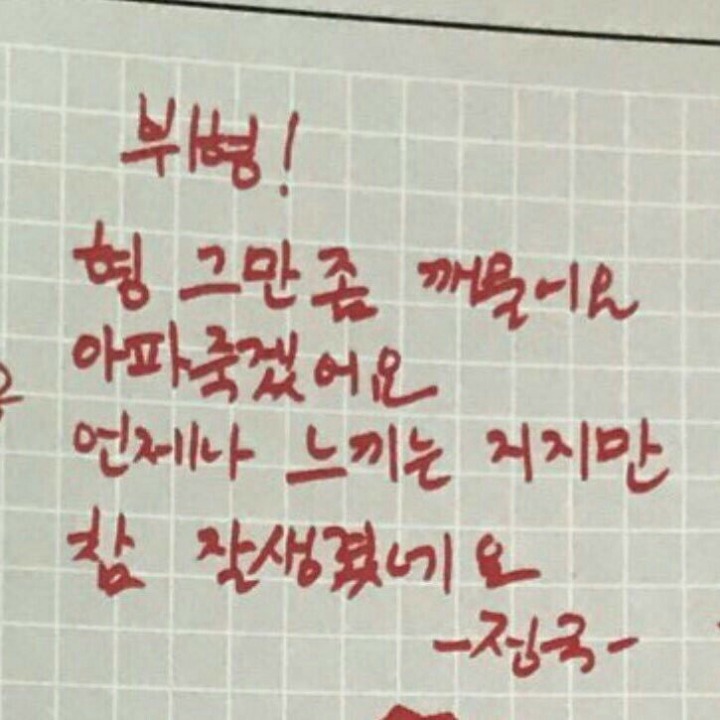 뷔형!
형 그만 좀 깨물어요
아파죽겠어요
언제나 느끼는 거지만
참 잘생겼네요
-정국-